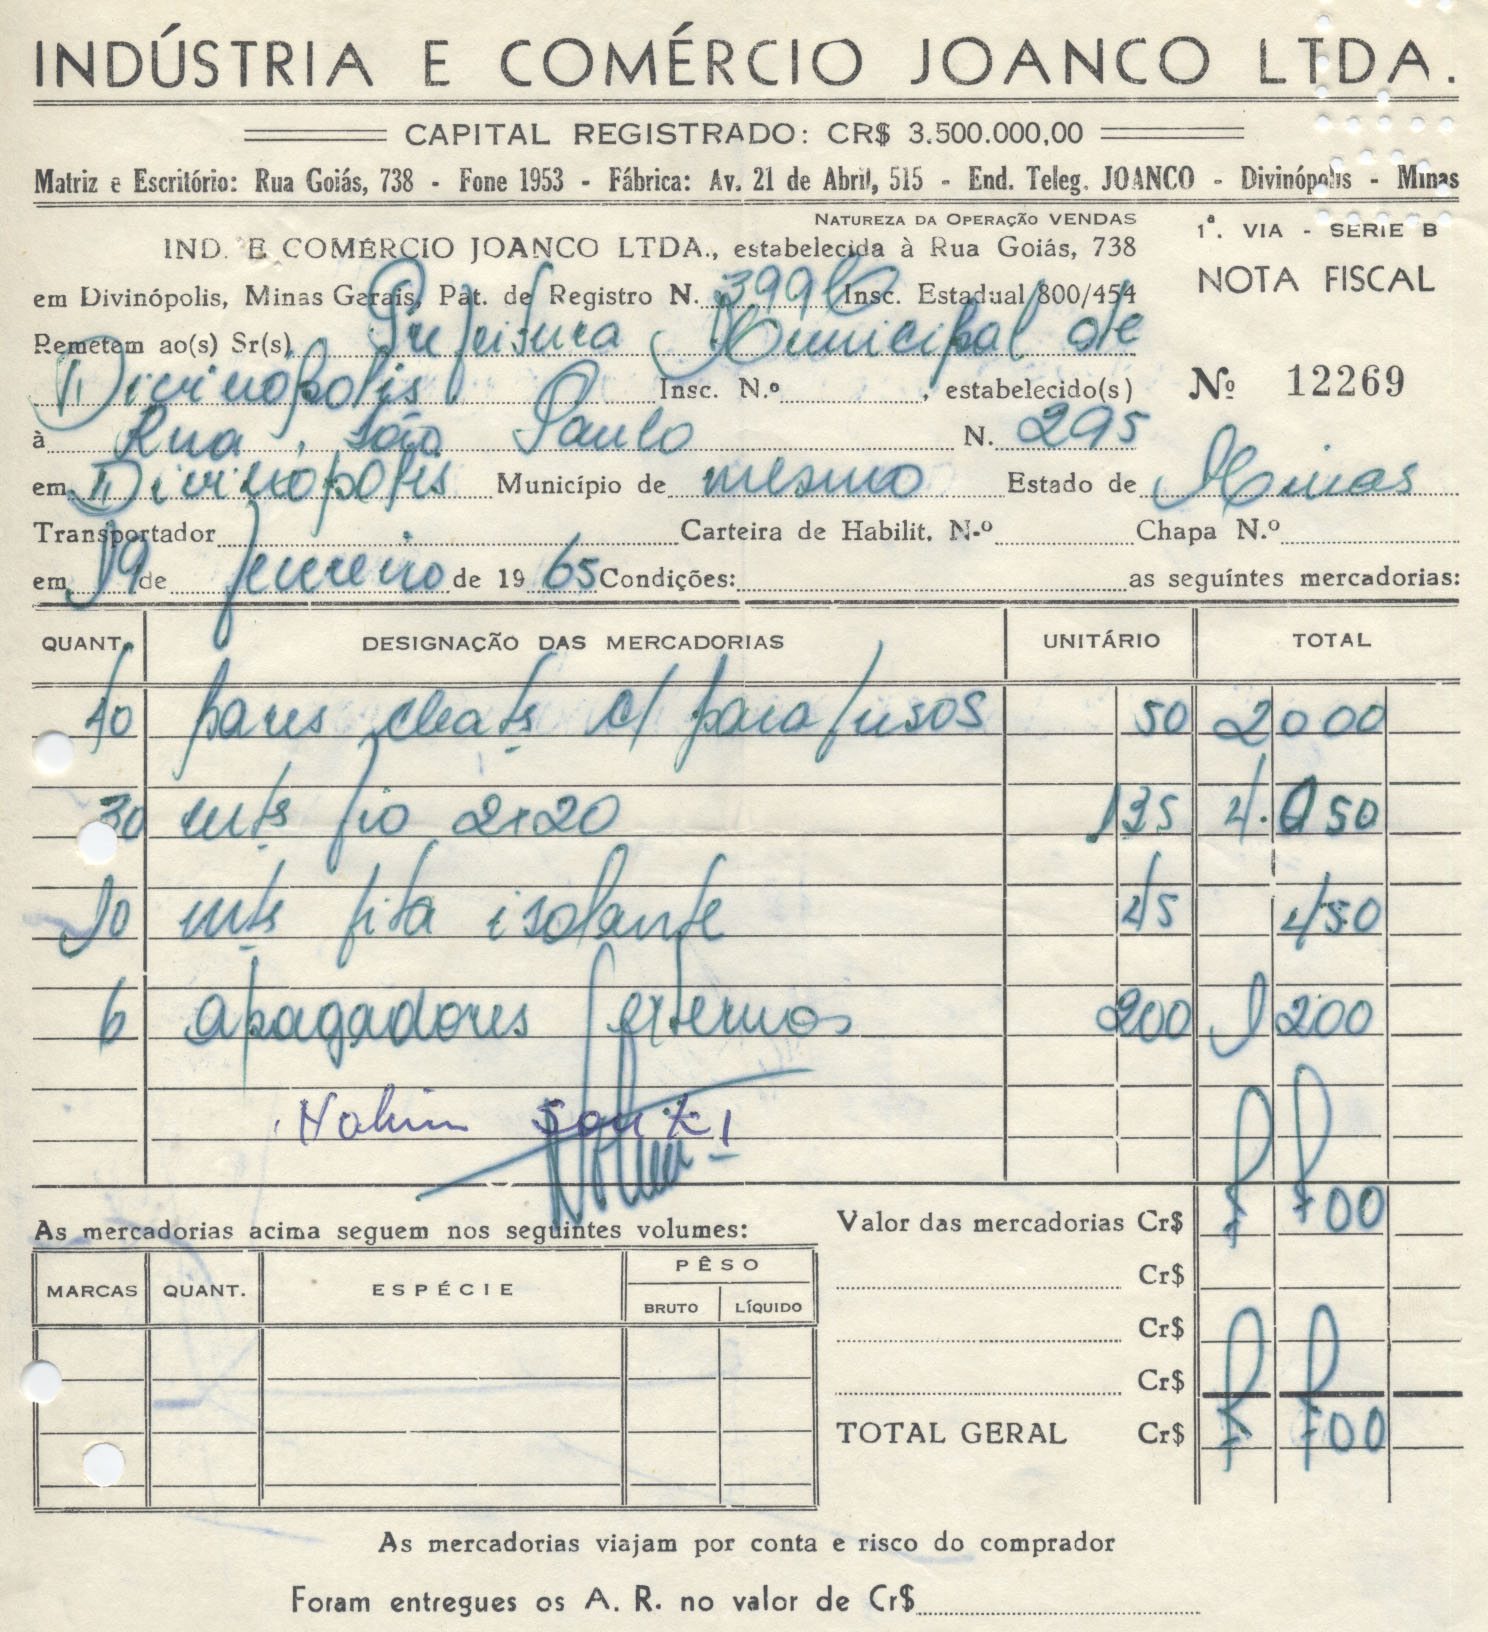 INDÚSTRIA E COMÉRCIO JOANCO LTDA.
CAPITAL REGISTRADO: CR$ 3.500.000,00
Matriz e Escritório: Rua Goiás, 738 - Fone 1953 - Fábrica: Av. 21 de Abril, 515 - End. Teleg. JOANCO - Divinópolis - Minas
NATUREZA DA OPERAÇÃO VENDAS
1ª. VIA - SERIE B
IND. E COMÉRCIO JOANCO LTDA., estabelecida à Rua Goiás, 738
NOTA FISCAL
em Divinópolis, Minas Gerais, Pat. de Registro N. 399 Insc. Estadual 800/454
Remetem ao(s) Sr(s) Prefeitura Municipal de
Divinópolis Insc. N.º , estabelecido(s)
Nº 12269
à Rua São Paulo N. 295
em Divinópolis Município de mesmo Estado de Minas
Transportador Carteira de Habilit. N.º Chapa N.º
em 19 de fevereiro de 1965 Condições: as seguintes mercadorias:
QUANT. DESIGNAÇÃO DAS MERCADORIAS UNITÁRIO TOTAL
40 pares cleats c/ parafusos 50 2000
30 mts fio 2x20 135 4.050
10 mts fita isolante 45 450
6 apagadores externos 200 1200
As mercadorias acima seguem nos seguintes volumes:
Valor das mercadorias Cr$ 7 700
MARCAS QUANT. ESPÉCIE PÊSO
BRUTO LÍQUIDO
Cr$
Cr$
Cr$
TOTAL GERAL Cr$ 7 700
As mercadorias viajam por conta e risco do comprador
Foram entregues os A. R. no valor de Cr$